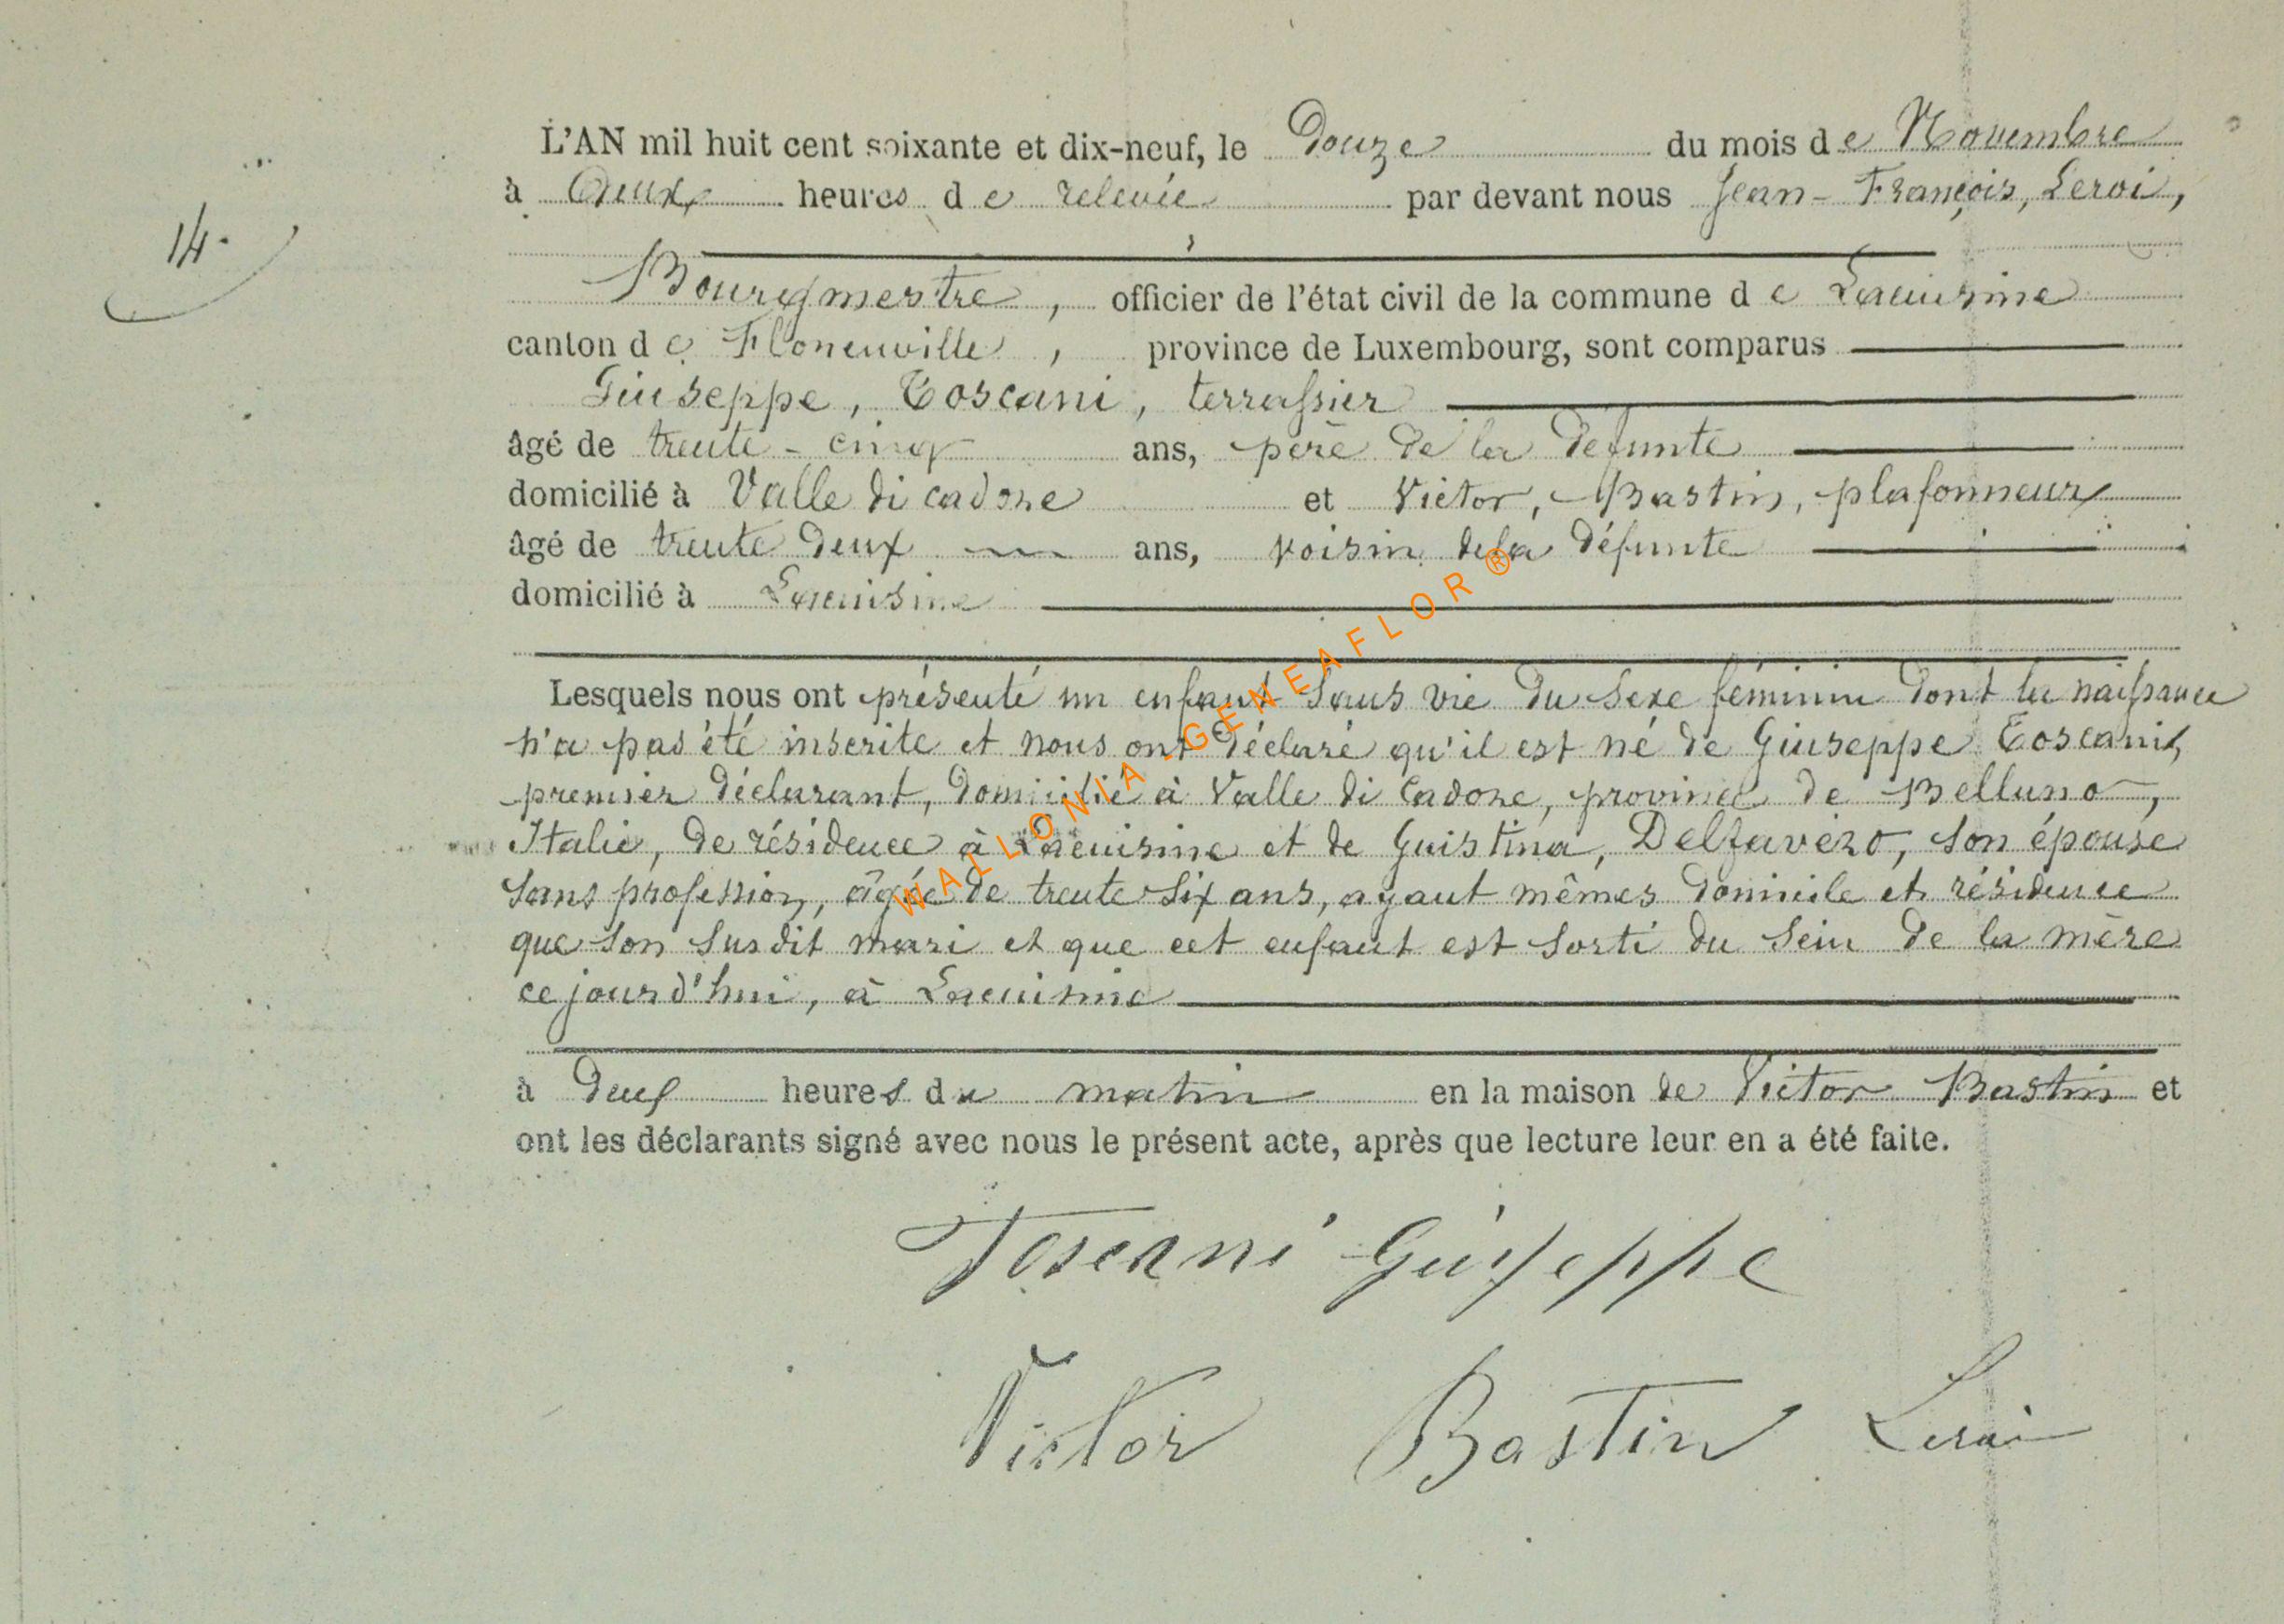 L'AN mil huit cent soixante et dix-neuf, le Douze du mois de Novembre
à Deux heures de relevée par devant nous Jean-François, Leroi,
14.
Bourgmestre, officier de l'état civil de la commune de Lacuisine
canton de Florenville, province de Luxembourg, sont comparus
Giuseppe, Toscani, terrassier
âgé de trente-cinq ans, père de la défunte
domicilié à Valle di cadore et Victor, Bastin, plafonneur
âgé de trente deux ans, voisin de la défunte
domicilié à Lacuisine
Lesquels nous ont présenté un enfant sans vie du sexe féminin dont la naissance
n'a pas été inscrite et nous ont déclaré qu'il est né de Giuseppe Toscani,
premier déclarant, domicilié à Valle di Cadore, province de Belluno,
Italie, de résidence à Lacuisine et de Guistina, Delfavéro, son épouse
sans profession, âgée de trente six ans, ayant mêmes domicile et résidence
que son susdit mari et que cet enfant est sorti du sein de la mère
ce jourd'hui, à Lacuisine
à deux heures du matin en la maison de Victor Bastin et
ont les déclarants signé avec nous le présent acte, après que lecture leur en a été faite.
Toscani Guiseppe
Victor Bastin Leroi
WALLONIA-GENEAFLOR®